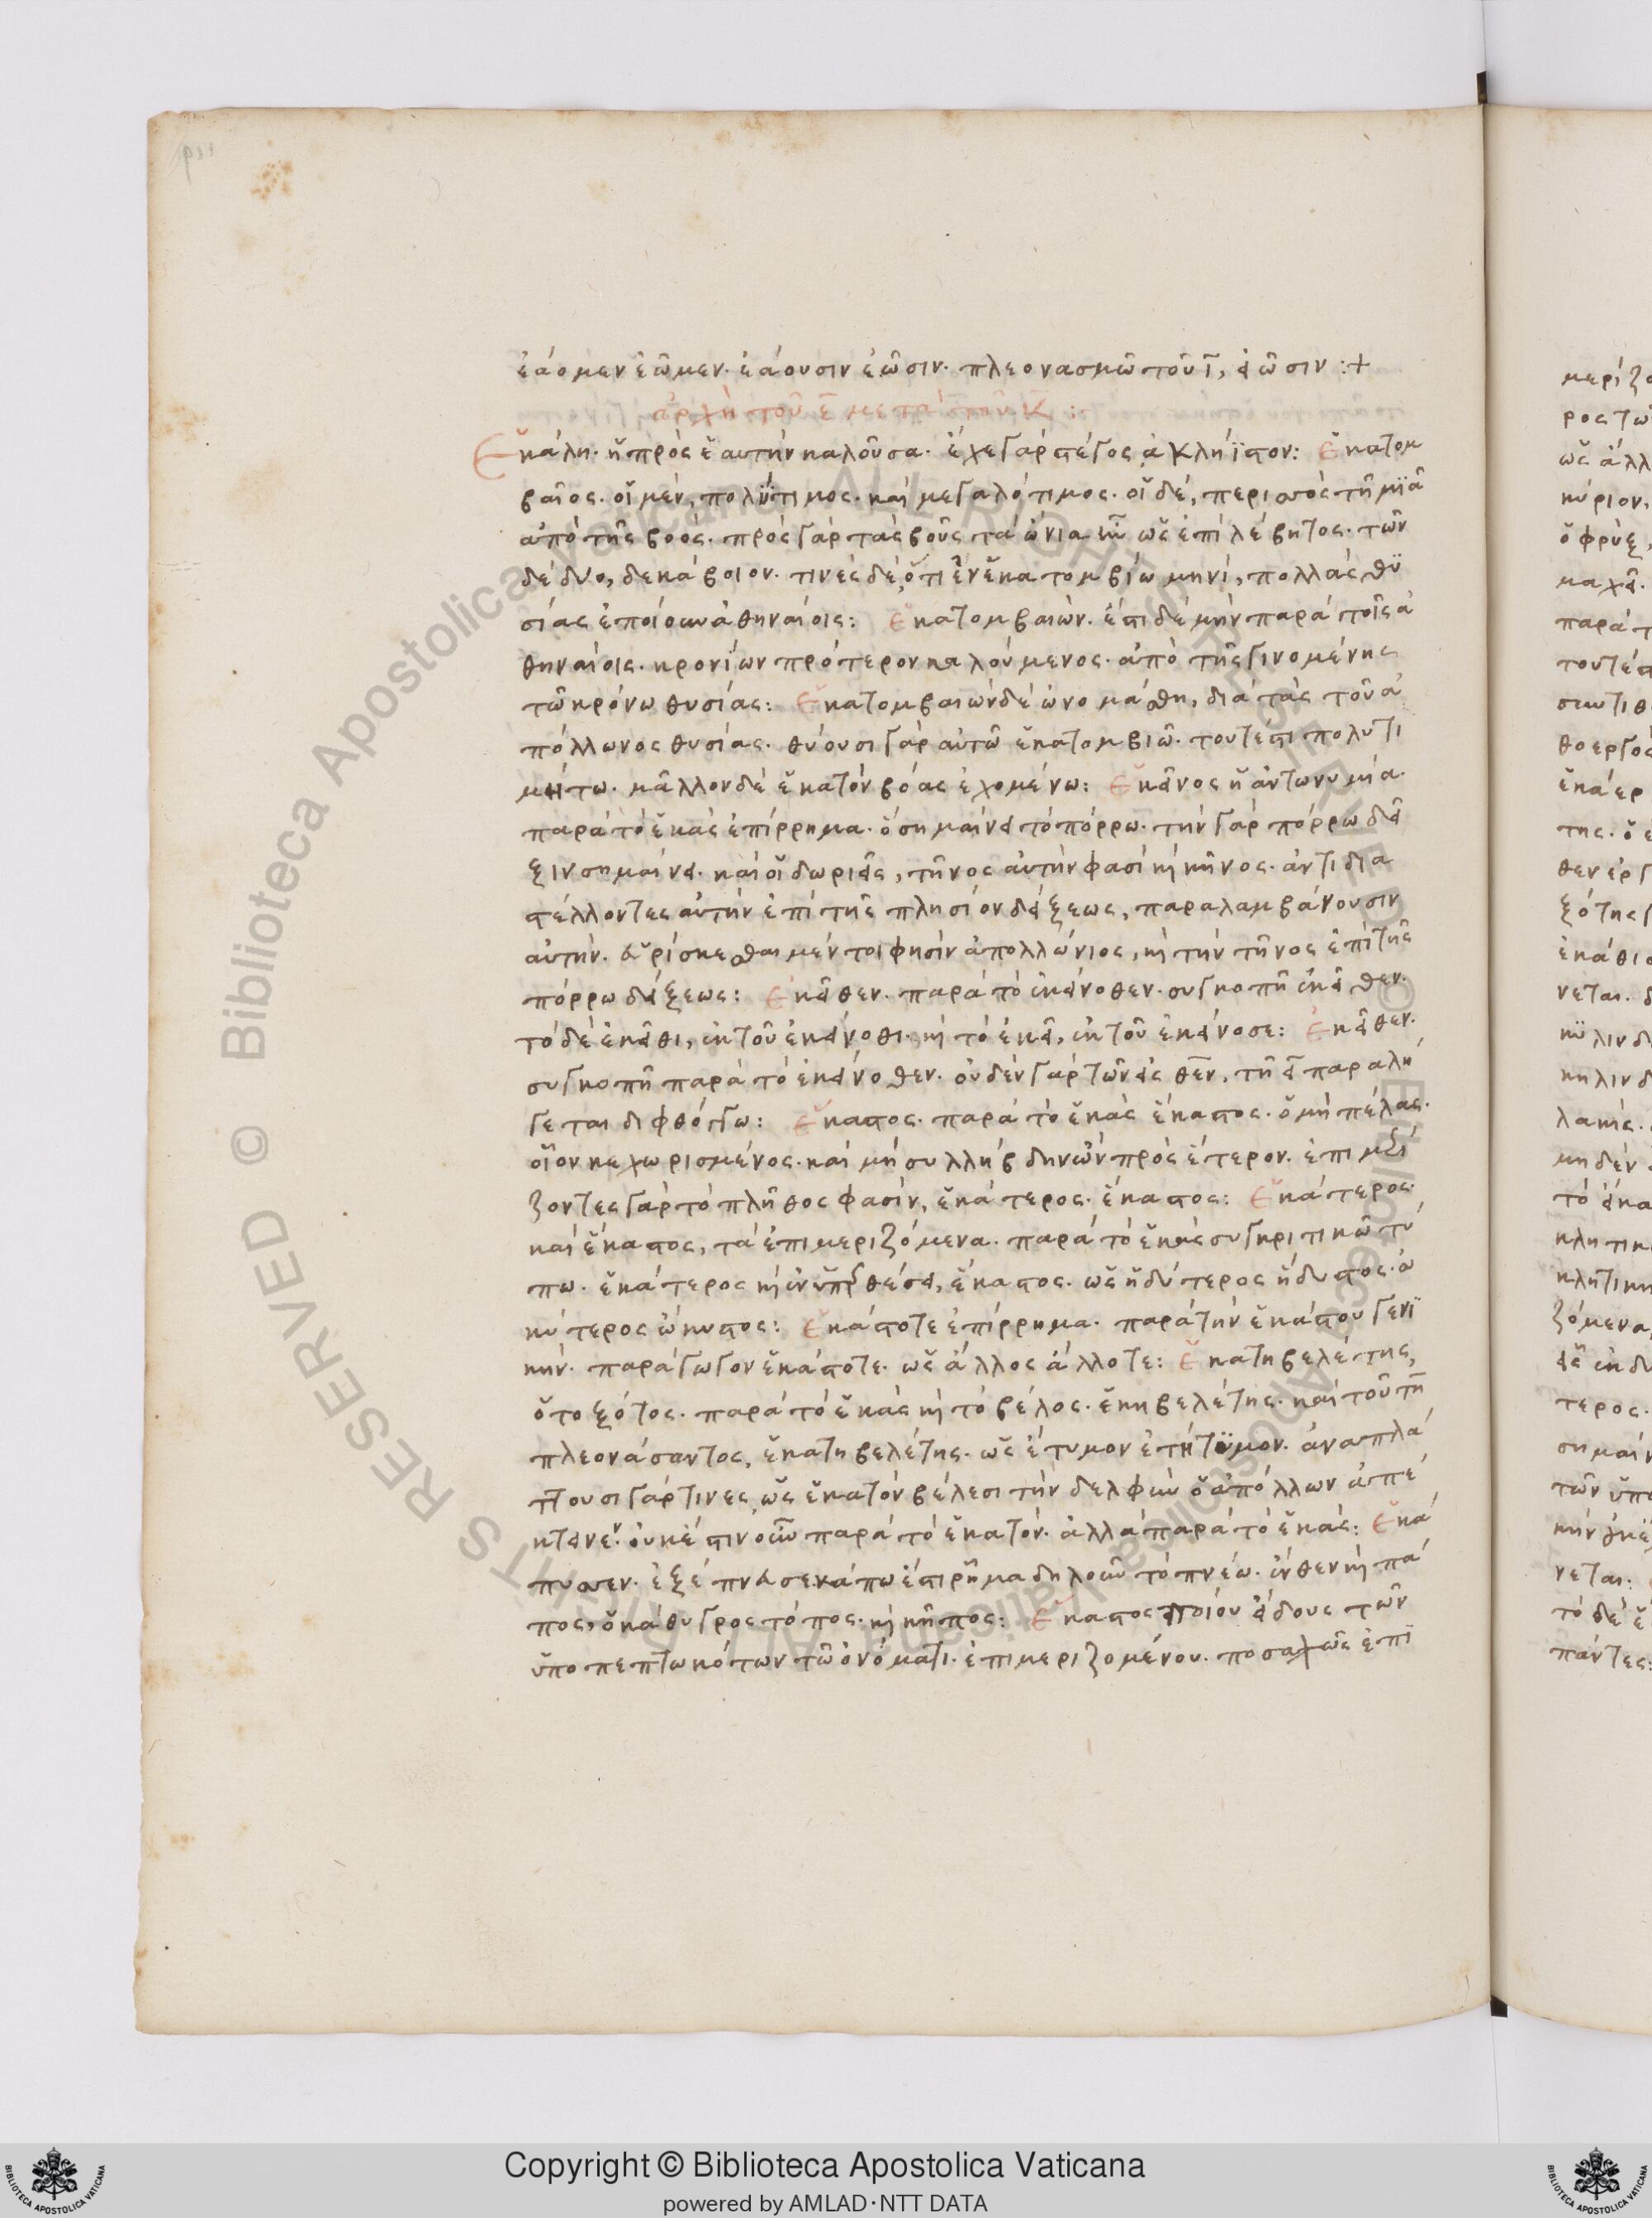 ἐάομεν ἐῶμεν· ἐάουσιν ἐῶσιν· πλεονασμῶ τοῦ ϊ, εἰῶσιν :+
ἀρχὴ τοῦ ε μετὰ τοῦ κ :
Ἑκάλη· ἡ πρὸς ἑαυτὴν καλοῦσα· ἔχε γὰρ στέγος ἀκλήϊστον: Ἑκατομ
βαῖος· οἱ μὲν, πολύτιμος· καὶ μεγαλότιμος· οἱ δὲ, περισσὸς τῆ μϊᾶ
ἀπὸ τῆς βοός· πρὸς γὰρ τὰς βοῦς τὰ ὤνια ἦν ὡς ἐπὶ λέβητος· τῶν
δὲ δύο, δεκάβοιον· τινὲς δὲ, ὅτι ἐν ἑκατομβίω μηνὶ, πολλὰς θϋ
σίας ἐποίουν ἀθηναίοις: Ἑκατομβαιών· ἔστι δὲ μὴν παρὰ τοῖς ἀ
θηναίοις· κρονίων πρότερον καλούμενος· ἀπὸ τῆς γινομένης
τῶ κρόνω θυσίας: Ἑκατομβαιὼν δὲ ὠνομάσθη, διὰ τὰς τοῦ ἀ
πόλλωνος θυσίας· θύουσι γὰρ αὐτῶ ἑκατομβιῶ· τουτέστι πολυτι
μήτω· μᾶλλον δὲ ἑκατὸν βόας ἐχομένω: Ἐκεῖνος ἡ ἀντωνυμία·
παρὰ τὸ ἑκὰς ἐπίρρημα· ὃ σημαίνει τὸ πόρρω· τὴν γὰρ πόρρω δεῖ
ξιν σημαίνει· καὶ οἱ δωριεῖς, τῆνος αὐτὴν φασὶ καὶ κῆνος· ἀντιδια
στέλλοντες αὐτὴν ἐπὶ τῆς πλησίον δείξεως, παραλαμβάνουσιν
αὐτήν· εὑρίσκεσθαι μέν τοι φησὶν ἀπολλώνιος, καὶ τὴν τῆνος ἐπὶ τῆς
πόρρω δείξεως: Ἐκεῖθεν· παρὰ τὸ ἐκείνοθεν· συγκοπῆ ἐκεῖθεν·
τὸ δὲ ἐκεῖθι, ἐκ τοῦ ἐκείνοθι· καὶ τὸ ἐκεῖ, ἐκ τοῦ ἐκείνοσε: Ἐκεῖθεν·
συγκοπῆ παρὰ τὸ ἐκείνοθεν· οὐδὲν γὰρ τῶν εἰς θεν, τῆ ει παραλή
γεται διφθόγγω: Ἕκαστος· παρὰ τὸ ἑκὰς ἕκαστος· ὁ μὴ πέλας·
οἷον κεχωρισμένος· καὶ μὴ συλλήβδην ὢν πρὸς ἕτερον· ἐπιμερί
ζοντες γὰρ τὸ πλῆθος φασὶν, ἑκάτερος· ἕκαστος: Ἑκάτερος·
καὶ ἕκαστος, τὰ ἐπιμεριζόμενα· παρὰ τὸ ἑκὰς συγκριτικῶ τύ
πω· ἑκάτερος καὶ ἐν ὑπερθέσει, ἕκαστος· ὡς ἡδύτερος ἥδυστος· ὠ
κύτερος ὤκυστος: Ἑκάστοτε ἐπίρρημα· παρὰ τὴν ἑκάστου γενϊ
κήν· παράγωγον ἑκάστοτε· ὡς ἄλλος ἄλλοτε: Ἑκατηβελέτης,
ὁ τοξότος· παρὰ τὸ ἑκὰς καὶ τὸ βέλος· ἑκηβελέτης· καὶ τοῦ τη
πλεονάσαντος, ἑκατηβελέτης· ὡς ἔτυμον ἐτήτϋμον· ἀναπλά
ττουσι γάρ τινες ὡς ἑκατὸν βέλεσι τὴν δελφὺν ὁ ἀπόλλων ἀπέ
κτεινεν· οὐκ ἔστιν οὖν παρὰ τὸ ἑκατόν· ἀλλὰ παρὰ τὸ ἑκάς: Ἐκά
πυσσεν· ἐξέπνευσε κάπω ἔστι ρῆμα δηλοῦν τὸ πνέω· ἔνθεν καὶ πά
πος, ὁ κάθυγρος τόπος· καὶ κῆπος: Ἕκαστος ποιοῦ εἴδους τῶν
ὑποπεπτωκότων τῶ ὀνόματι· ἐπιμεριζομένου· ποσαχῶς ἐπϊ